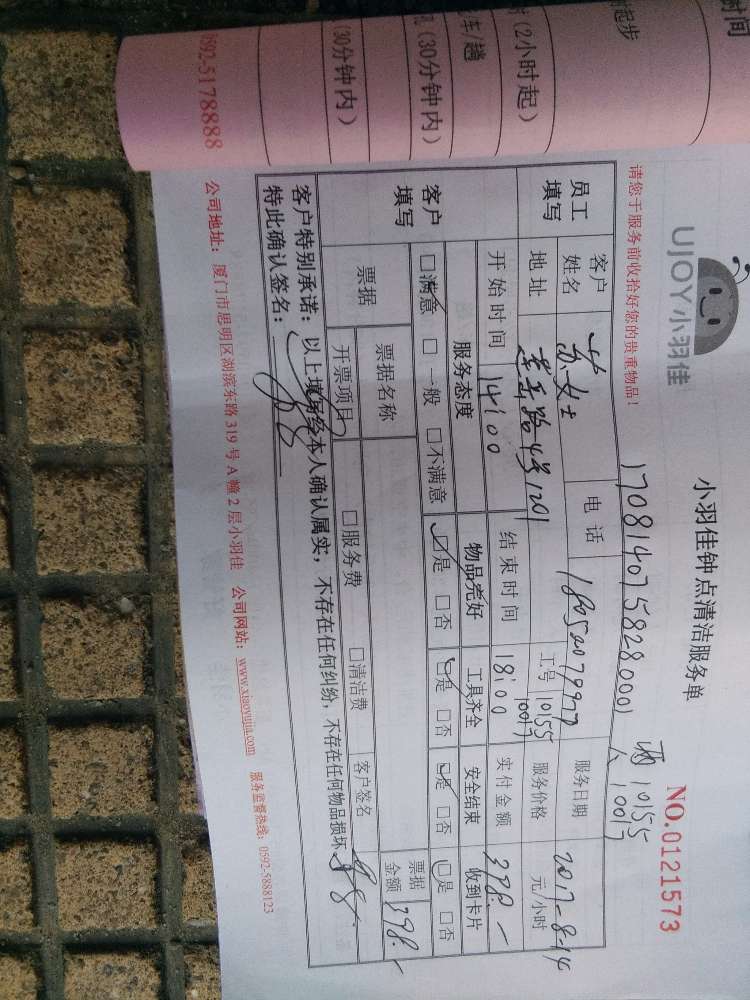 时间
时起步
时(2小时起)
车/趟
孔(30分钟内)
(30分钟内)
0592-5178888
UJOY小羽佳
小羽佳钟点清洁服务单
NO.0121573
请您于服务前收拾好您的贵重物品!
1708140758280001 两人 10155 10017
员工填写 客户姓名 苏女士 电话 服务日期 2017-8-14
地址 4号1201 工号 10155 10017 服务价格 元/小时
客户填写 开始时间 14:00 结束时间 18:00 实付金额 398.-
服务态度 物品完好 工具齐全 安全结束 收到卡片
□满意 □一般 □不满意 □是 □否 □是 □否 □是 □否 □是 □否
票据 票据名称 票据金额 398.-
开票项目 □服务费 □清洁费 客户签名
客户特别承诺:以上填写经本人确认属实,不存在任何纠纷,不存在任何物品损坏
特此确认签名:
公司地址:厦门市思明区湖滨东路319号A幢2层小羽佳 公司网站:www.xiaoyujia.com 服务监督热线:0592-5888123